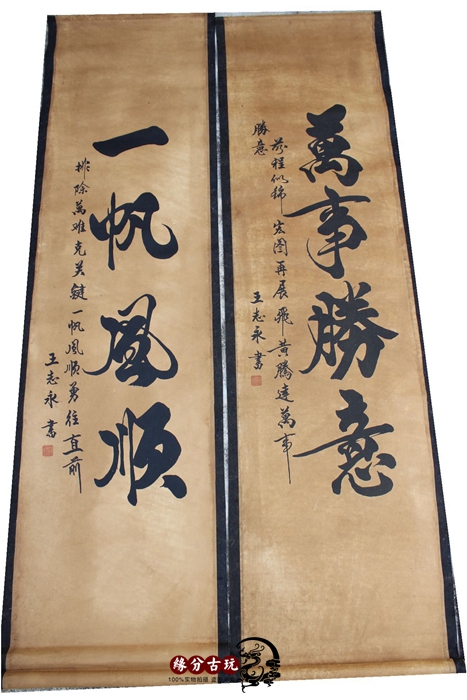 萬事勝意
前程似錦宏圖再展飛黃騰達萬事
勝意
王志永書
一帆風順
排除萬难克关鍵一帆風順勇往直前
王志永書
緣分古玩
100%实物拍摄